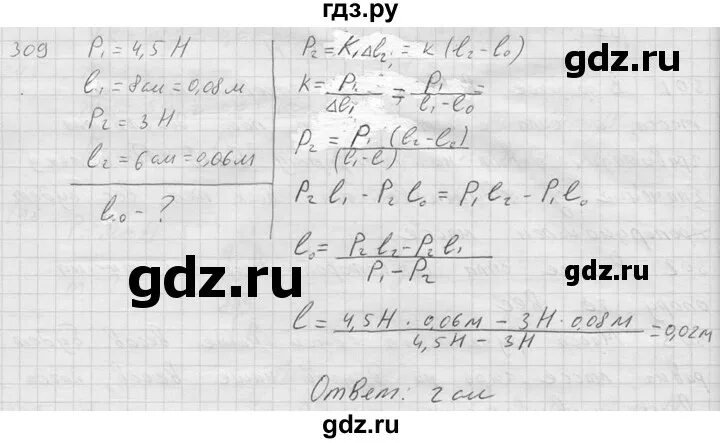 гдз.ру
309
P₁ = 4,5 Н
l₁ = 8см = 0,08м
P₂ = 3 Н
l₂ = 6см = 0,06м
l₀ - ?
P₂ = K₁Δl₂ = k (l₂ - l₀)
K = P₁/Δl₁ = P₁/(l₁ - l₀) =
P₂ = P₁ (l₂ - l₀)/(l₁ - l)
P₂ l₁ - P₂ l₀ = P₁ l₂ - P₁ l₀
l₀ = (P₂ l₂ - P₂ l₁)/(P₁ - P₂)
l = (4,5Н · 0,06м - 3Н · 0,08м)/(4,5Н - 3Н) = 0,02м
Ответ: 2см
gdz.ru
gdz.ru
gdz.ru